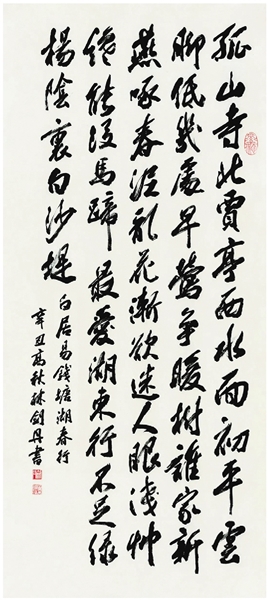 孤山寺北賈亭西水面初平雲
脚低幾處早鶯爭暖樹誰家新
燕啄春泥乱花漸欲迷人眼淺艸
纔能沒馬蹄最愛湖東行不足緑
楊陰裏白沙堤
白居易錢塘湖春行
辛丑高秋林劍丹書